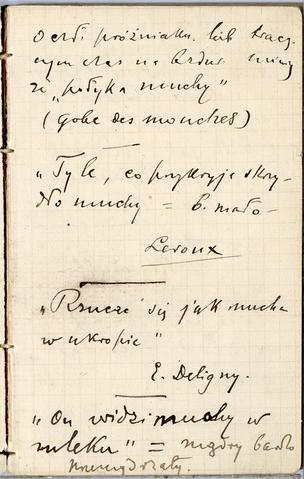 próżniaku lub tracą-
cym czas na
że „połyka muchy"
(gobe des mouches)
„Tyle, co przykryje skrzy-
dło muchy = b. mało –
Leroux
„Rzucać się jak mucha
w ukropie"
E. Deligny.
„On widzi muchy w
mleku" = mądry